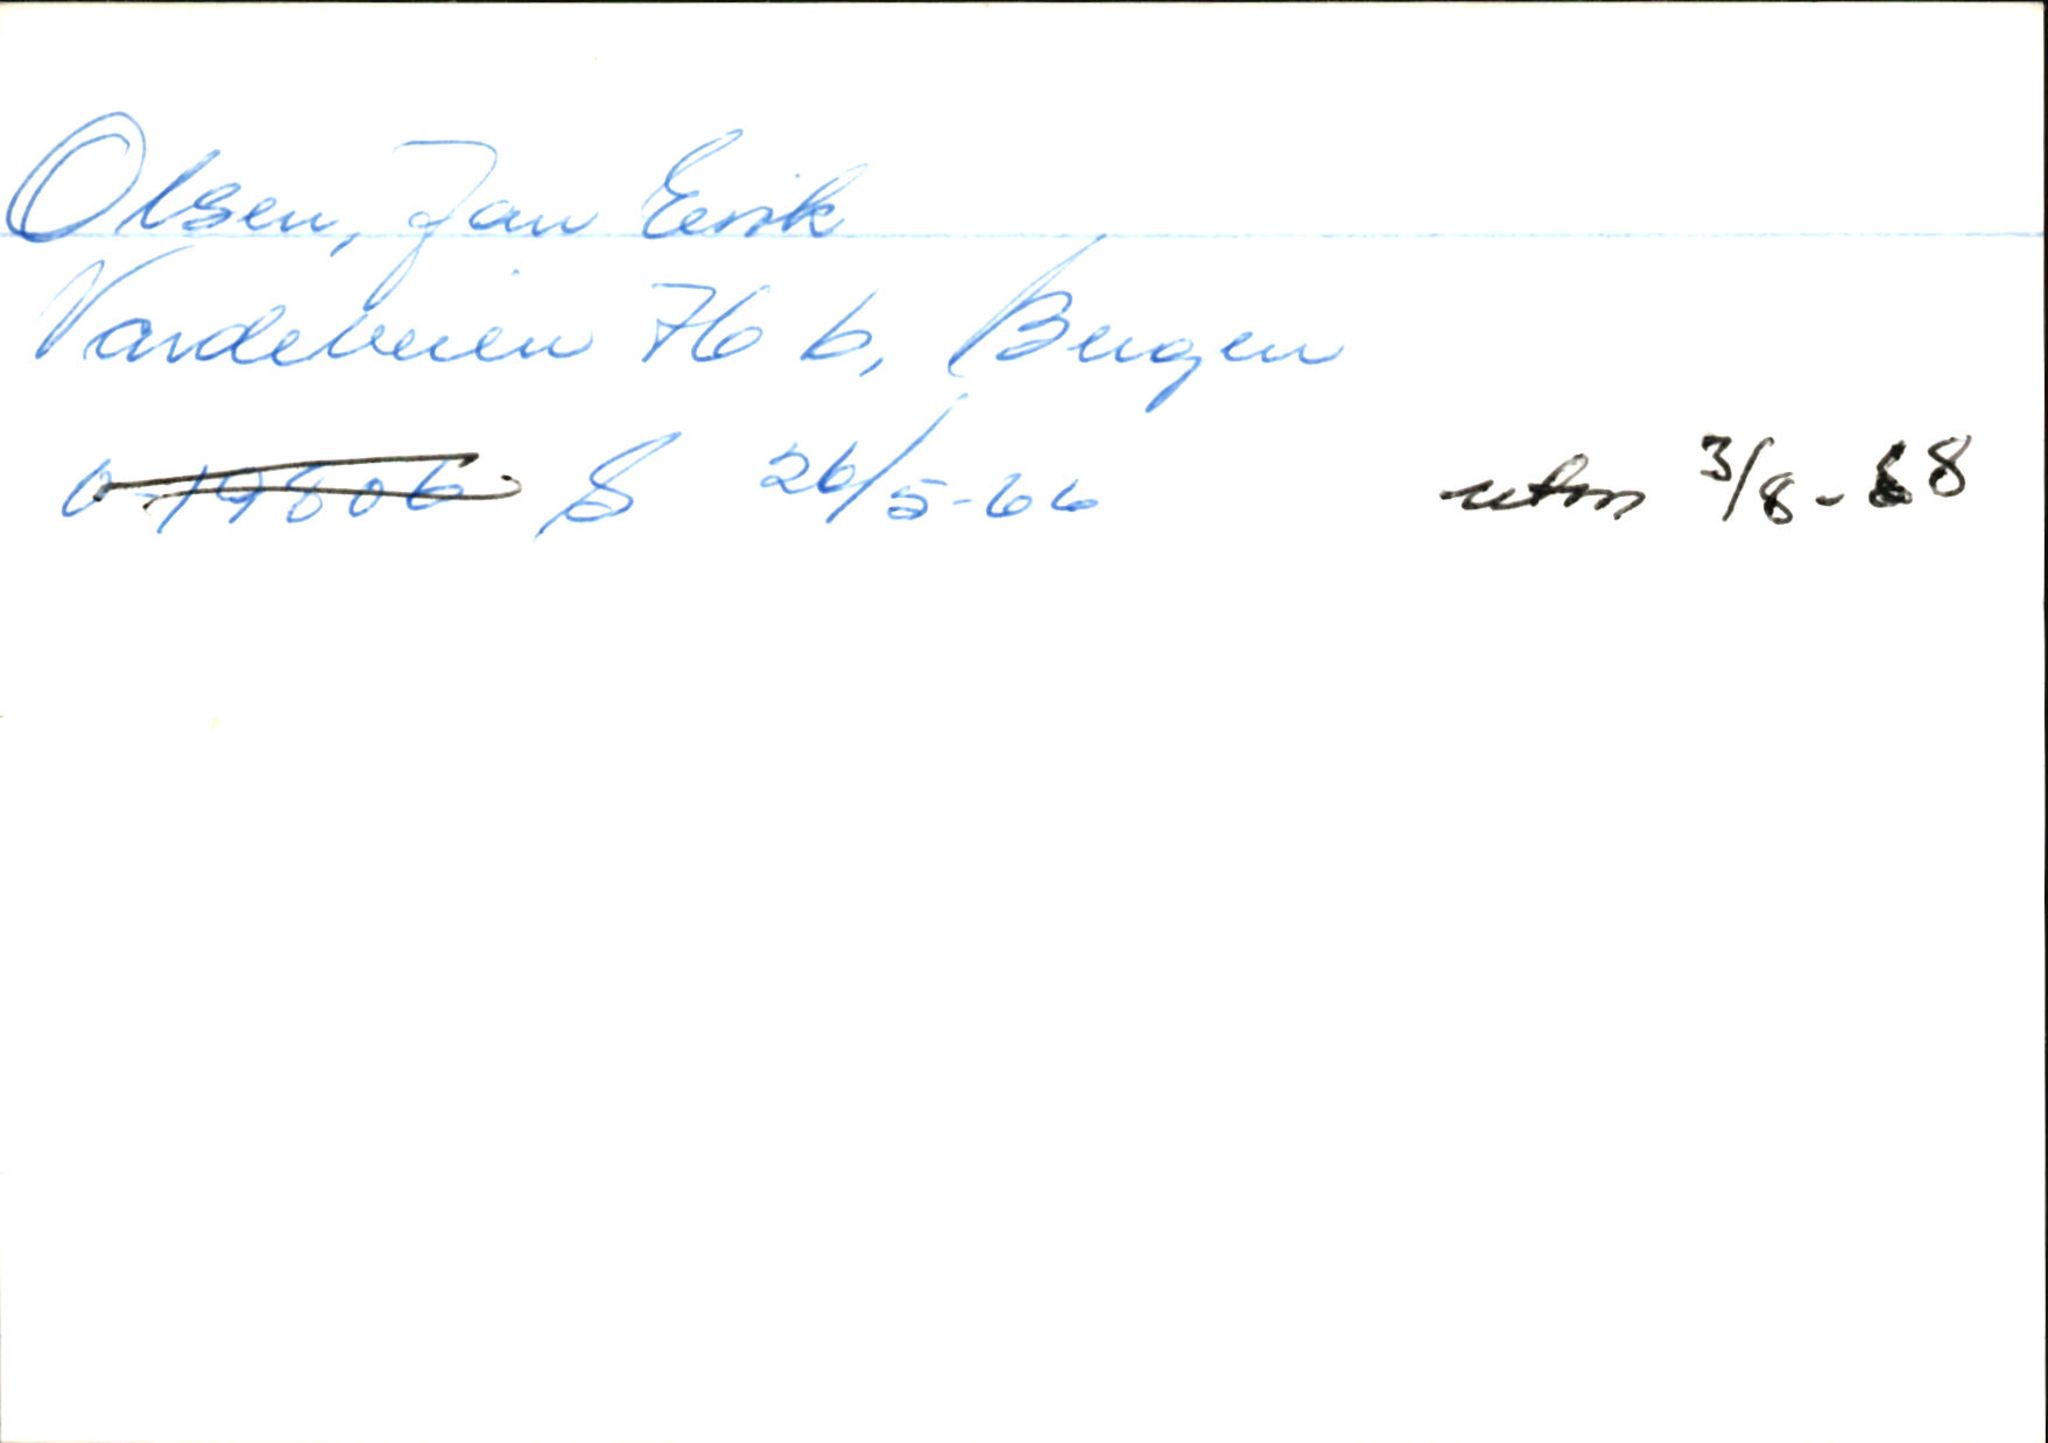 Olsen, Jan Eirik
Vardeveien 76 b, Bergen
O-19806 S 26/5-66 utm 3/8-68